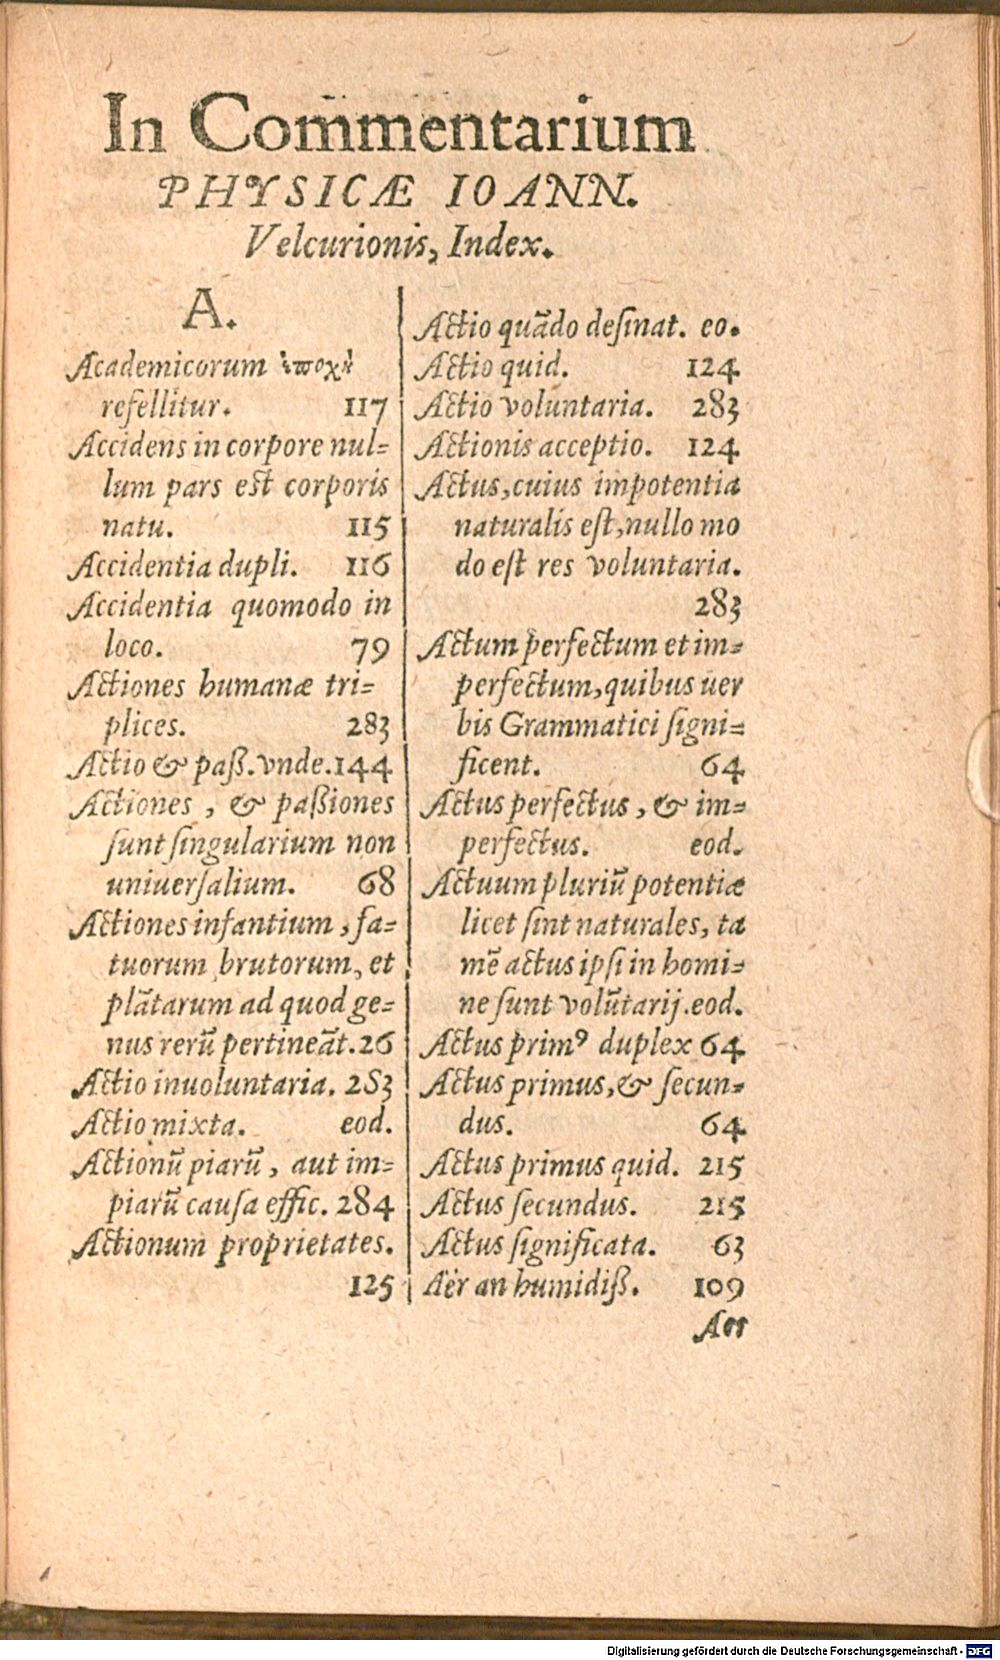 In Commentarium
PHYSICÆ IOANN.
Velcurionis, Index.
A.
Academicorum ἐποχὴ
refellitur. 117
Accidens in corpore nul=
lum pars est corporis
natu. 115
Accidentia dupli. 116
Accidentia quomodo in
loco. 79
Actiones humanæ tri=
plices. 283
Actio & paß. vnde. 144
Actiones, & paßiones
sunt singularium non
uniuersalium. 68
Actiones infantium, fa=
tuorum brutorum, et
plātarum ad quod ge=
nus rerū pertineāt. 26
Actio inuoluntaria. 283
Actio mixta. eod.
Actionū piarū, aut im=
piarū causa effic. 284
Actionum proprietates.
125
Actio quādo desinat. eo.
Actio quid. 124
Actio voluntaria. 283
Actionis acceptio. 124
Actus, cuius impotentia
naturalis est, nullo mo
do est res voluntaria.
283
Actum perfectum et im=
perfectum, quibus uer
bis Grammatici signi=
ficent. 64
Actus perfectus, & im=
perfectus. eod.
Actuum pluriū potentiæ
licet sint naturales, ta
mē actus ipsi in homi=
ne sunt volūtarij. eod.
Actus primꝰ duplex 64
Actus primus, & secun=
dus. 64
Actus primus quid. 215
Actus secundus. 215
Actus significata. 63
Aër an humidiß. 109
Aer
Digitalisierung gefördert durch die Deutsche Forschungsgemeinschaft - DFG